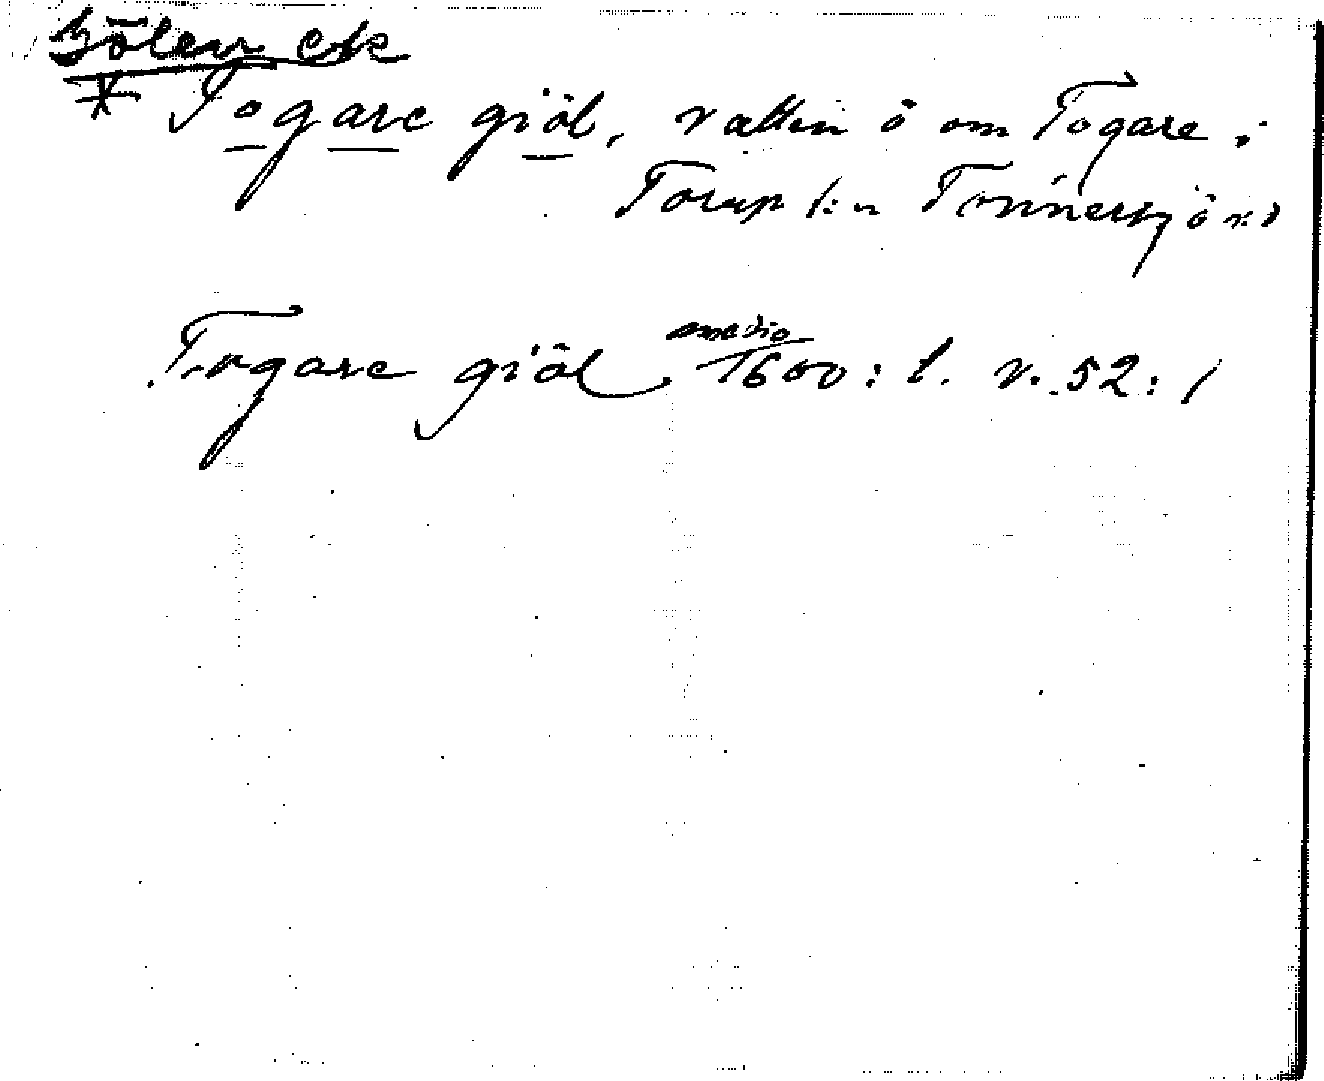 Sölew ek
* Togare giöl, vatten ö om Togare i
Torup sn Tönnersjö hd
Togare giöl medio 1600: l. v. 52: 1